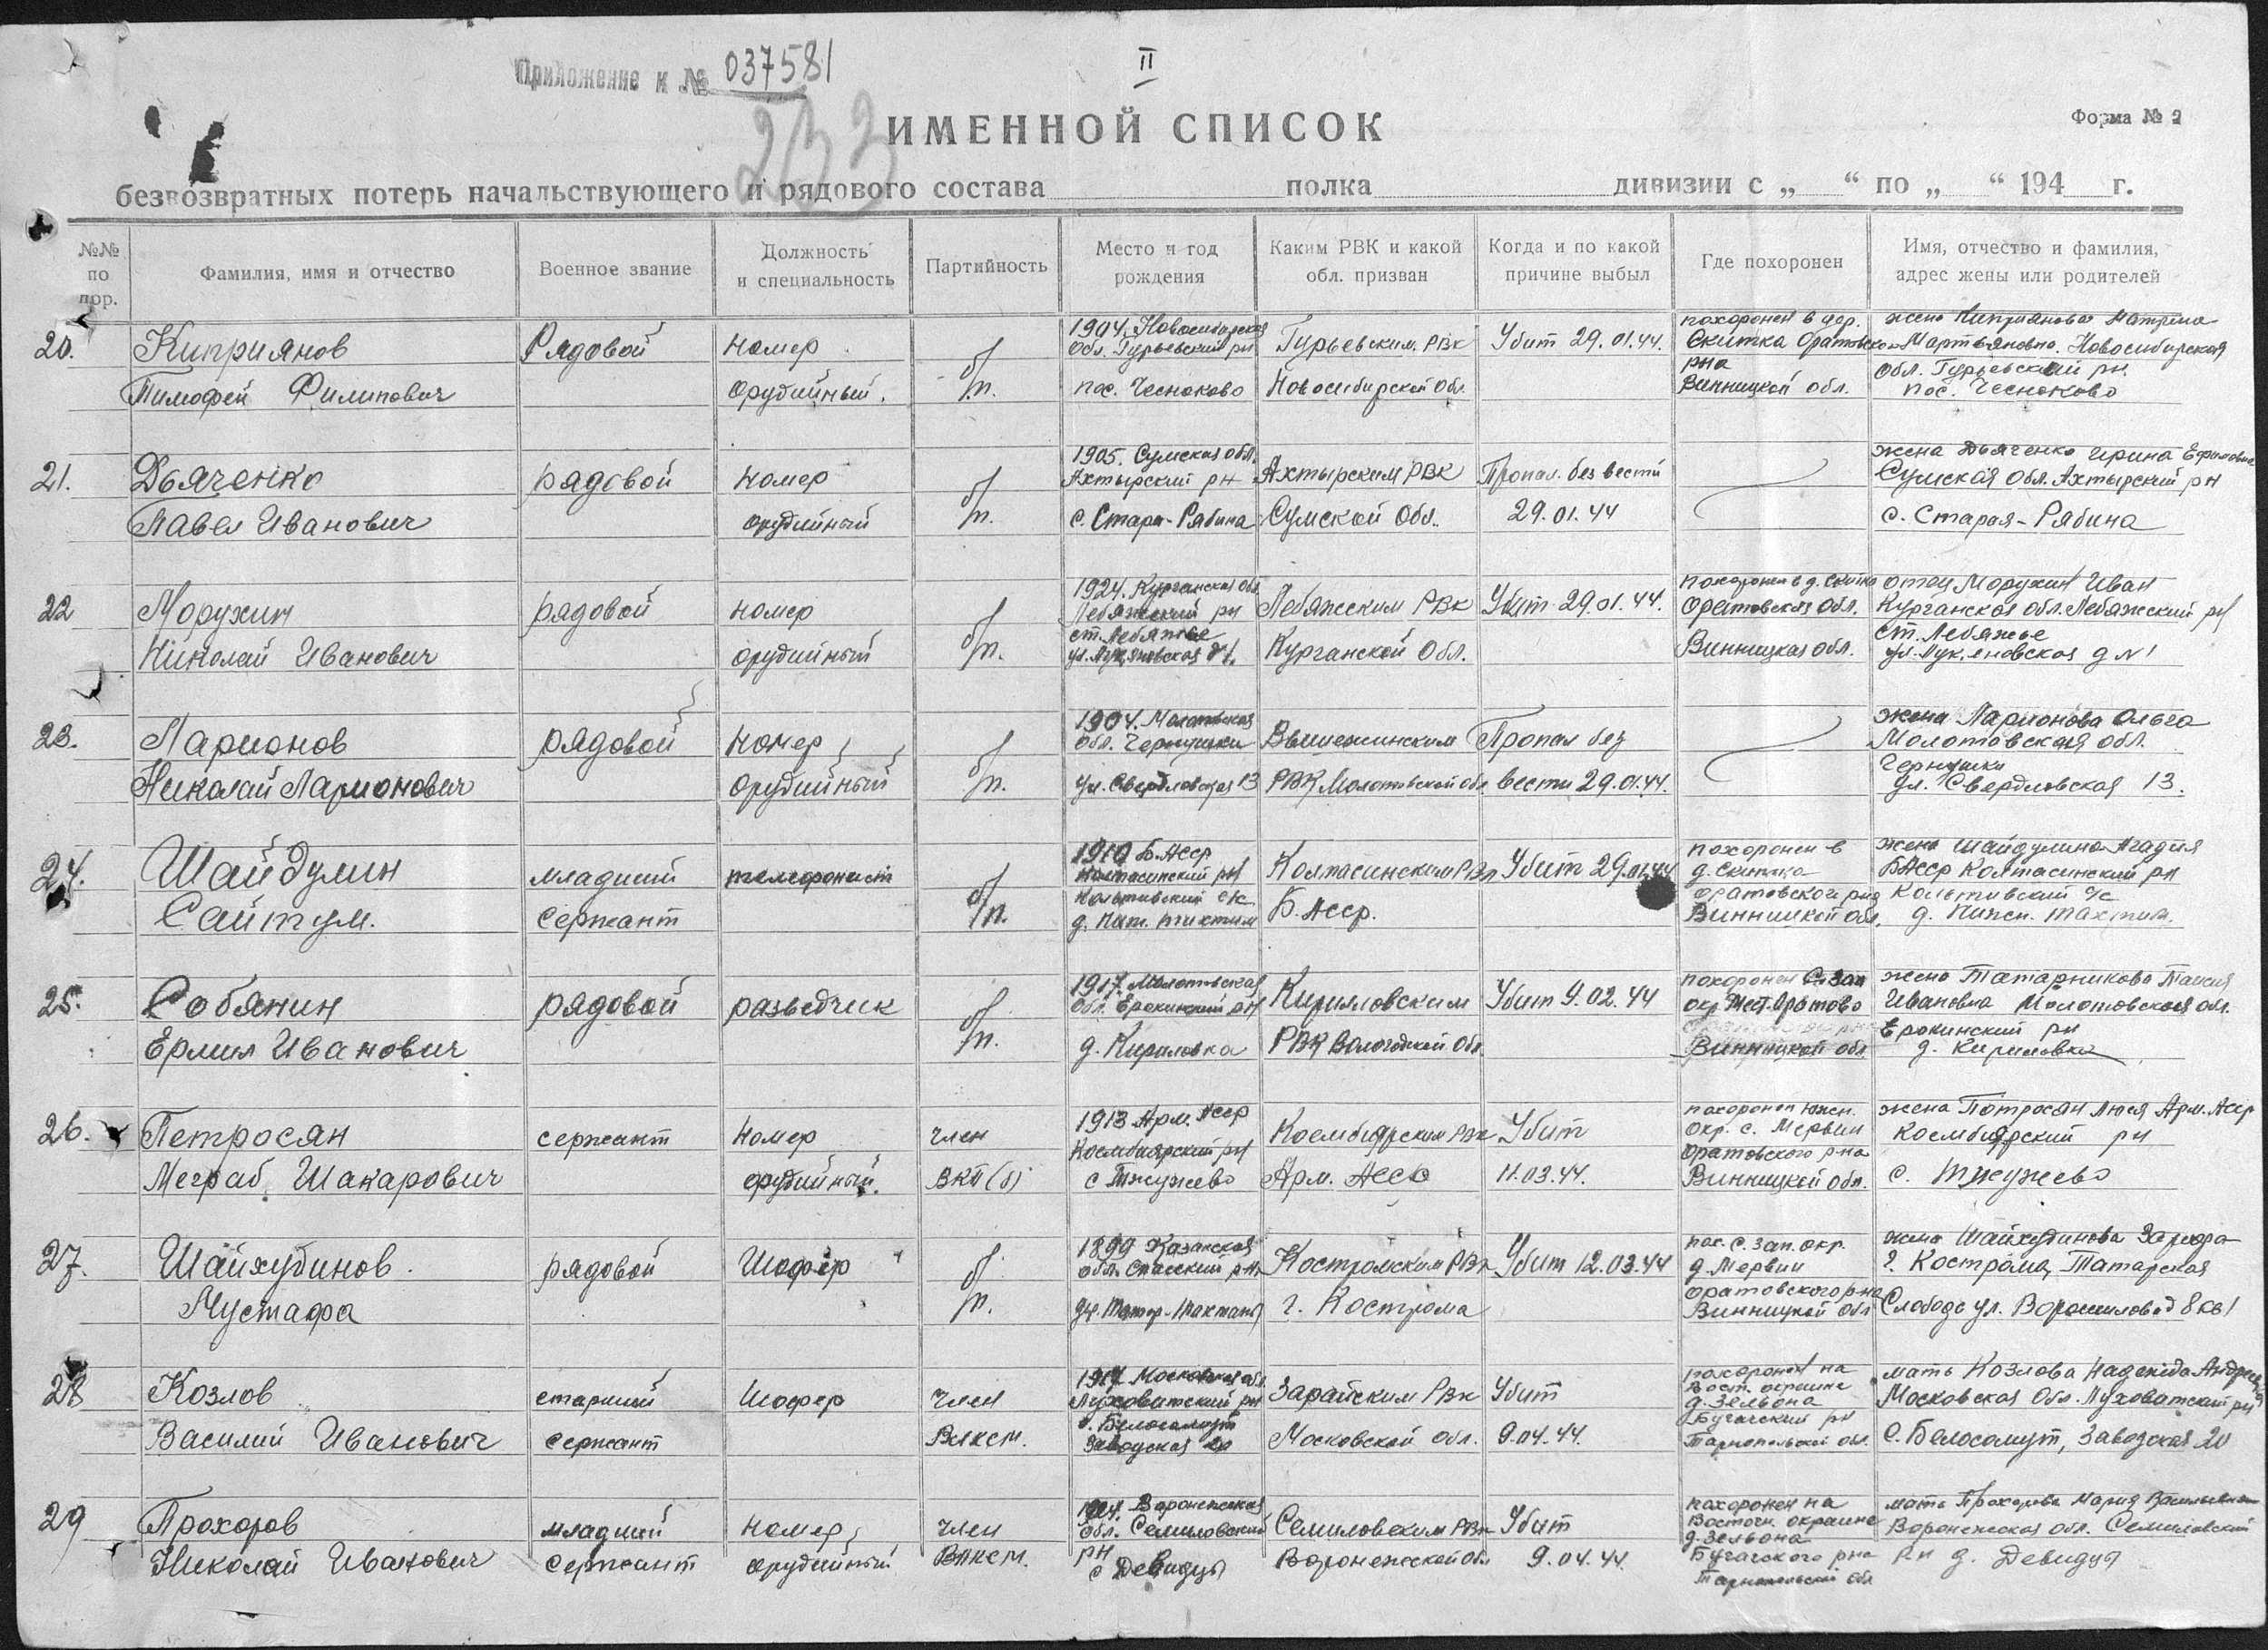 Приложение к № 037581
II
233
ИМЕННОЙ СПИСОК
Форма № 2
безвозвратных потерь начальствующего и рядового состава полка дивизии с „ “ по „ “ 194 г.
№№ по пор.
Фамилия, имя и отчество
Военное звание
Должность и специальность
Партийность
Место и год рождения
Каким РВК и какой обл. призван
Когда и по какой причине выбыл
Где похоронен
Имя, отчество и фамилия, адрес жены или родителей
20.
Киприянов
Тимофей Филипович
Рядовой
номер
орудийный.
б/п.
1904. Новосибирская
обл. Гурьевский рн
пос. Чесноково
Гурьевским. РВК
Новосибирской обл.
Убит 29.01.44.
похоронен в дер.
Скитка Оратовско
рна
Винницкой обл.
жена Киприянова Матрёна
Мартьяновна. Новосибирская
обл. Гурьевский рн
пос. Чесноково
21.
Дьяченко
Павел Иванович
рядовой
номер
орудийный
б/п.
1905. Сумская обл.
Ахтырский рн
с. Стара-Рябина
Ахтырским РВК
Сумской Обл.
Пропал. без вести
29.01.44
жена Дьяченко Ирина Ефимовна
Сумская Обл. Ахтырский рн
с. Старая-Рябина
22
Моружин
Николай Иванович
рядовой
номер
орудийный
б/п.
1924. Курганская Обл.
Лебяжеский рн
ст. Лебяжье
Лебяжеским РВК
Курганской Обл.
Убит 29.01.44.
похоронен в д. Скитка
Оратовская обл.
Винницкая обл.
отец Моружин Иван
Курганская обл. Лебяжеский рн
ст. Лебяжье
д №1
23.
Ларионов
Николай Ларионович
рядовой
номер
орудийный
б/п.
1904. Молотовская
обл. Чернушки
ул. Свердловская 13
РВК Молотовской обл
Пропал без
вести 29.01.44.
жена Ларионова Ольга
Молотовская обл.
Чернушки
ул. Свердловская 13.
24.
Шайдулин
Сайтул.
младший
сержант
телефонист
б/п.
1910 Б.Асср
Колтасинский рн
с/с
Колтасинским РВК
Б. Асср.
Убит 29.01.44
похоронен в
д. Скитка
Оратовского рна
Винницкой обл.
жена Шайдулина
БАсср Колтасинский рн
с/с
25.
Собянин
Ермил Иванович
рядовой
разведчик
б/п.
1917. Молотовская
обл. рн
д. Кириловка
Кириловским
РВК Вологодской Обл
Убит 9.02.44
похоронен С-Зап
окр. мест. Оратово
Винницкой обл.
жена Татарникова Таисия
Ивановна Молотовская обл.
рн
д. Кириловка
26.
Петросян
Меграб Шакарович
сержант
номер
орудийный.
член
ВКП(б)
1913 Арм. Асср
рн
РВК
Арм. Асср
Убит
11.03.44.
похоронен южн.
окр. с. Мервин
Оратовского рна
Винницкой обл.
жена Потросян Люся Арм. Асср
рн
с.
27.
Шайхудинов.
Мустафа
рядовой
Шофер
б/п.
1899 Казанская
обл. Спасский р-н
Костромским РВК
г. Кострома
Убит 12.03.44
пох. с. зап. окр.
д. Мервин
Оратовского рна
Винницкой обл
жена Шайхудинова
г. Кострома, Татарская
Слобода ул. Ворошилова д 8 кв 1
28
Козлов
Василий Иванович
старший
сержант
Шофер
член
Влксм.
Московская обл.
Луховитский рн
с. Белоомут
Заводская 20
Зарайским РВК
Московской обл.
Убит
9.04.44.
похоронен на
Вост. окраине
д. Зельона
Бучачский рн
Тарнопольской обл.
мать Козлова Надежда Андреевна
Московская Обл. Луховатский рн
с. Белосомут, Заводская 20
29
Прохоров
Николай Иванович
младший
сержант
номер
орудийный
член
Влксм.
1924. Воронежская
обл. Семиловский
рн
с Девицы
Семиловским РВК
Воронежской Обл
Убит
9.04.44.
похоронен на
Восточн. окраине
д. Зельона
Бучачского рна
Тарнопольской обл
мать Прохорова Мария Васильевна
Воронежская обл. Семиловский
рн д. Девицы